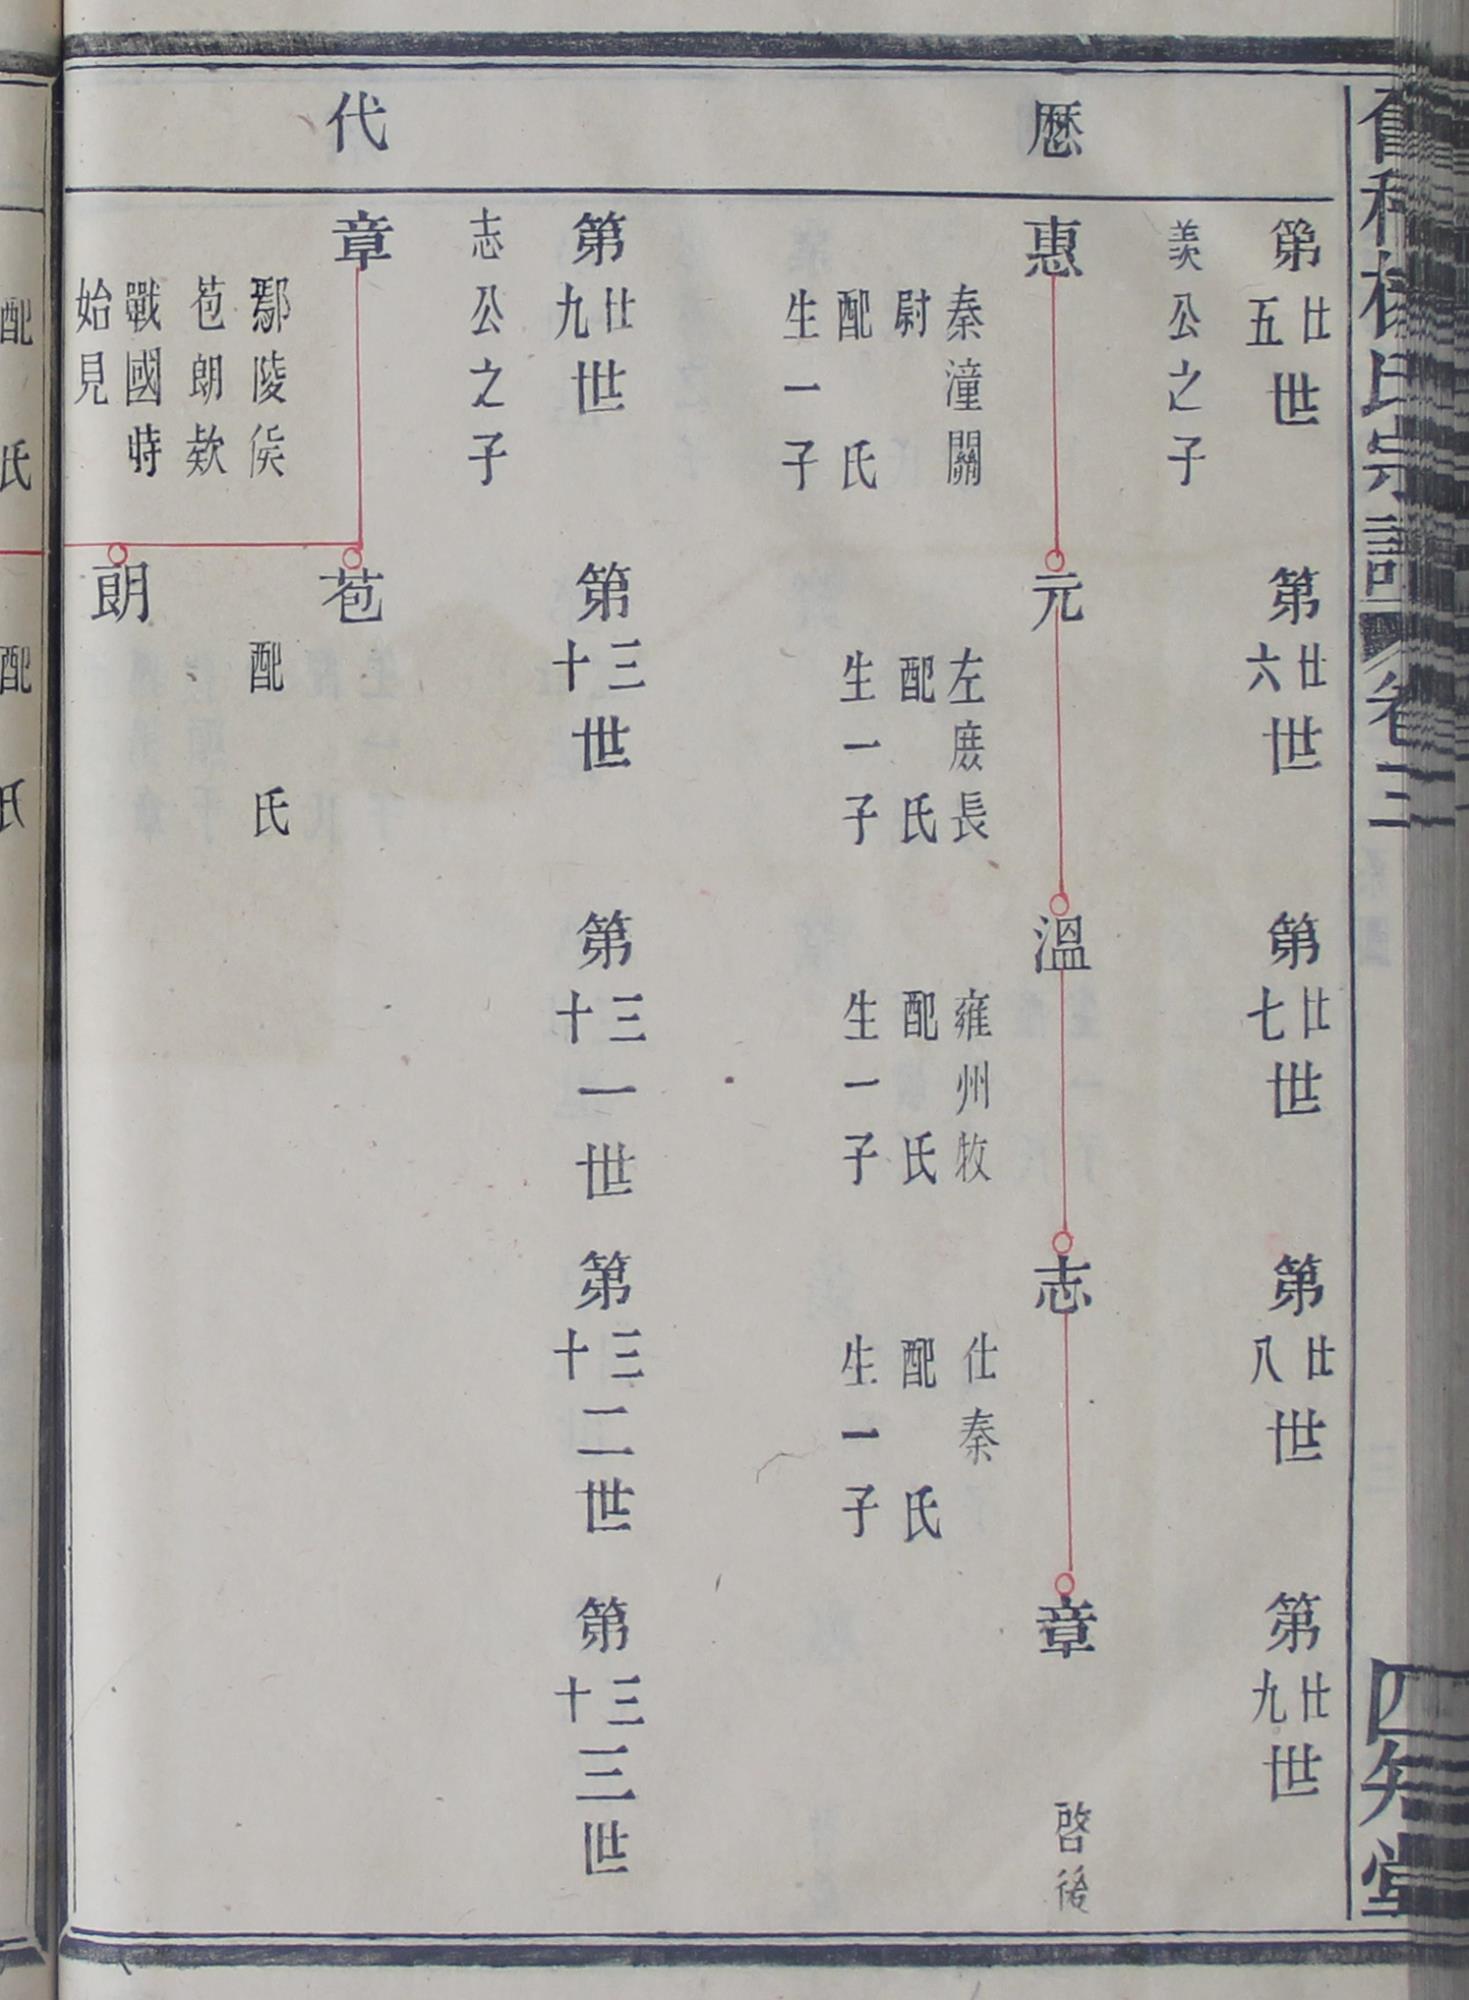 歷
代
第廿五世
第廿六世
第廿七世
第廿八世
第廿九世
羙公之子
惠
秦潼關
尉
配氏
生一子
元
左庻長
配氏
生一子
溫
雍州牧
配氏
生一子
志
仕秦
配氏
生一子
章
啓後
第廿九世
第三十世
第三十一世
第三十二世
第三十三世
志公之子
章
鄢陵侯
苞朗欵
戰國時
始見
苞
配氏
朗
配氏
配氏
氏宗譜
卷三
四知堂